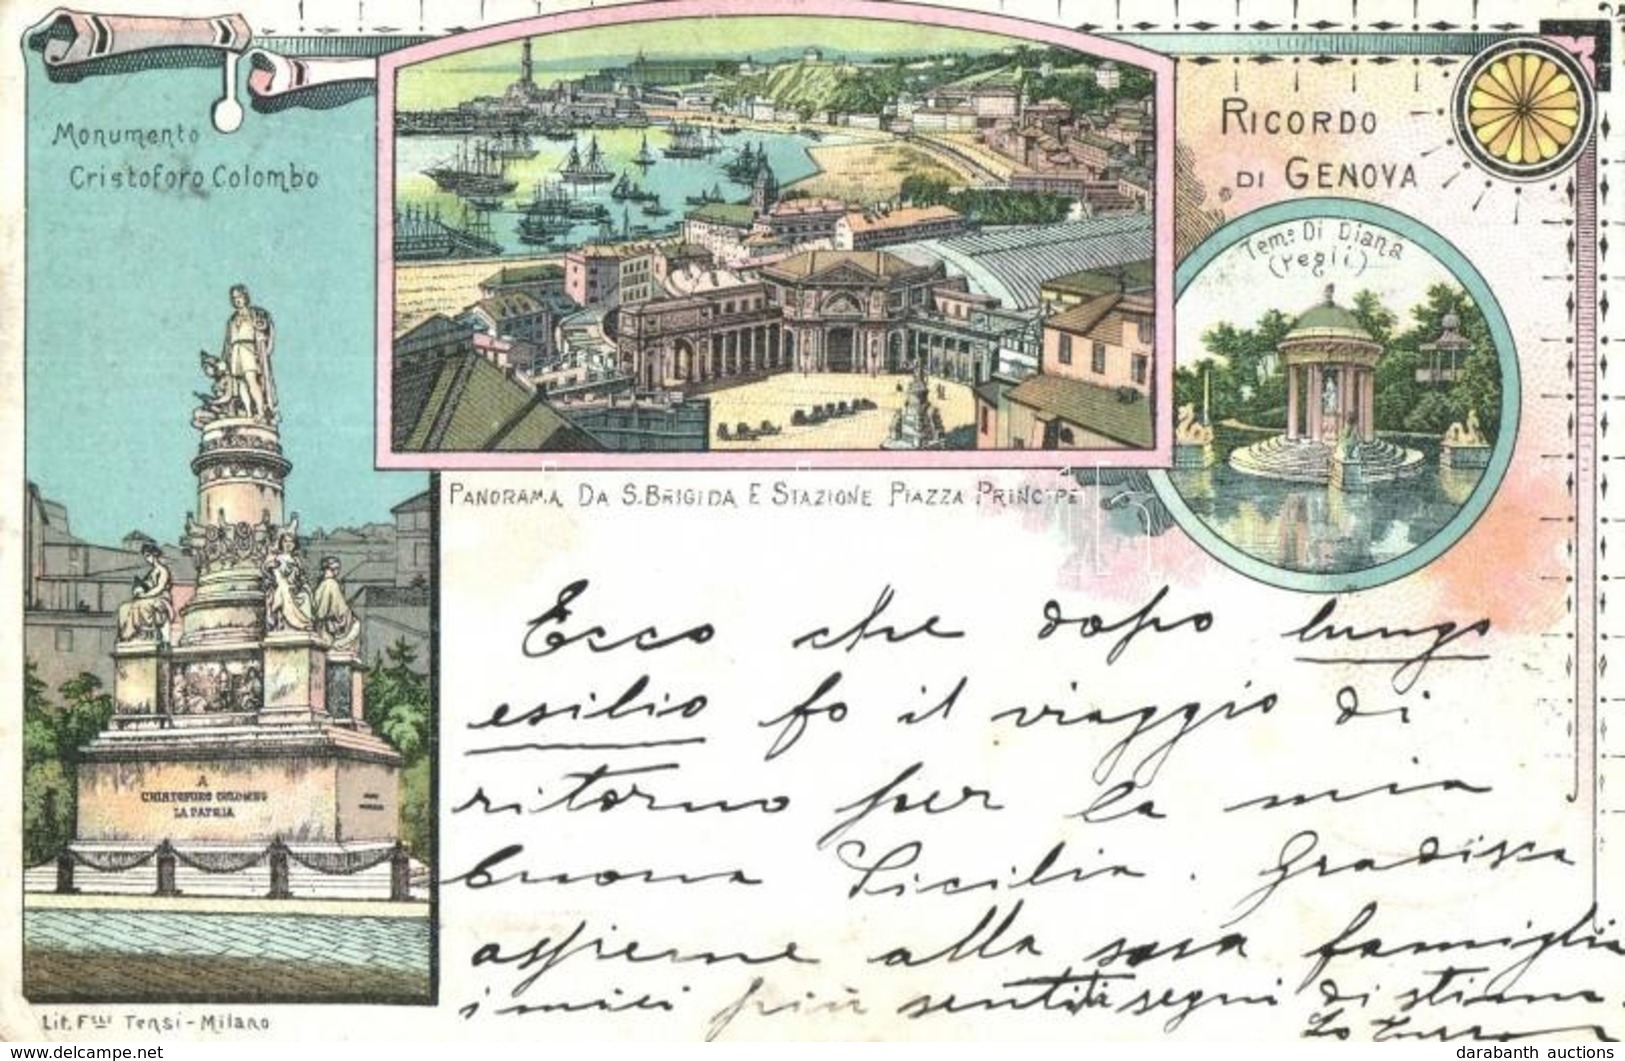 Monumento
Cristoforo Colombo
RICORDO
DI GENOVA
Tem.o Di Diana
(Pegli)
PANORAMA DA S. BRIGIDA E STAZIONE PIAZZA PRINCIPE
A
CRISTOFORO COLOMBO
LA PATRIA
Ecco che dopo lungo
esilio fo il viaggio di
ritorno per la mia
buona Sicilia. Gradisca
assieme alla sua famiglia
i miei più sentiti segni di stima.
Lit. F.lli Tensi - Milano
www.delcampe.net
darabanth auctions